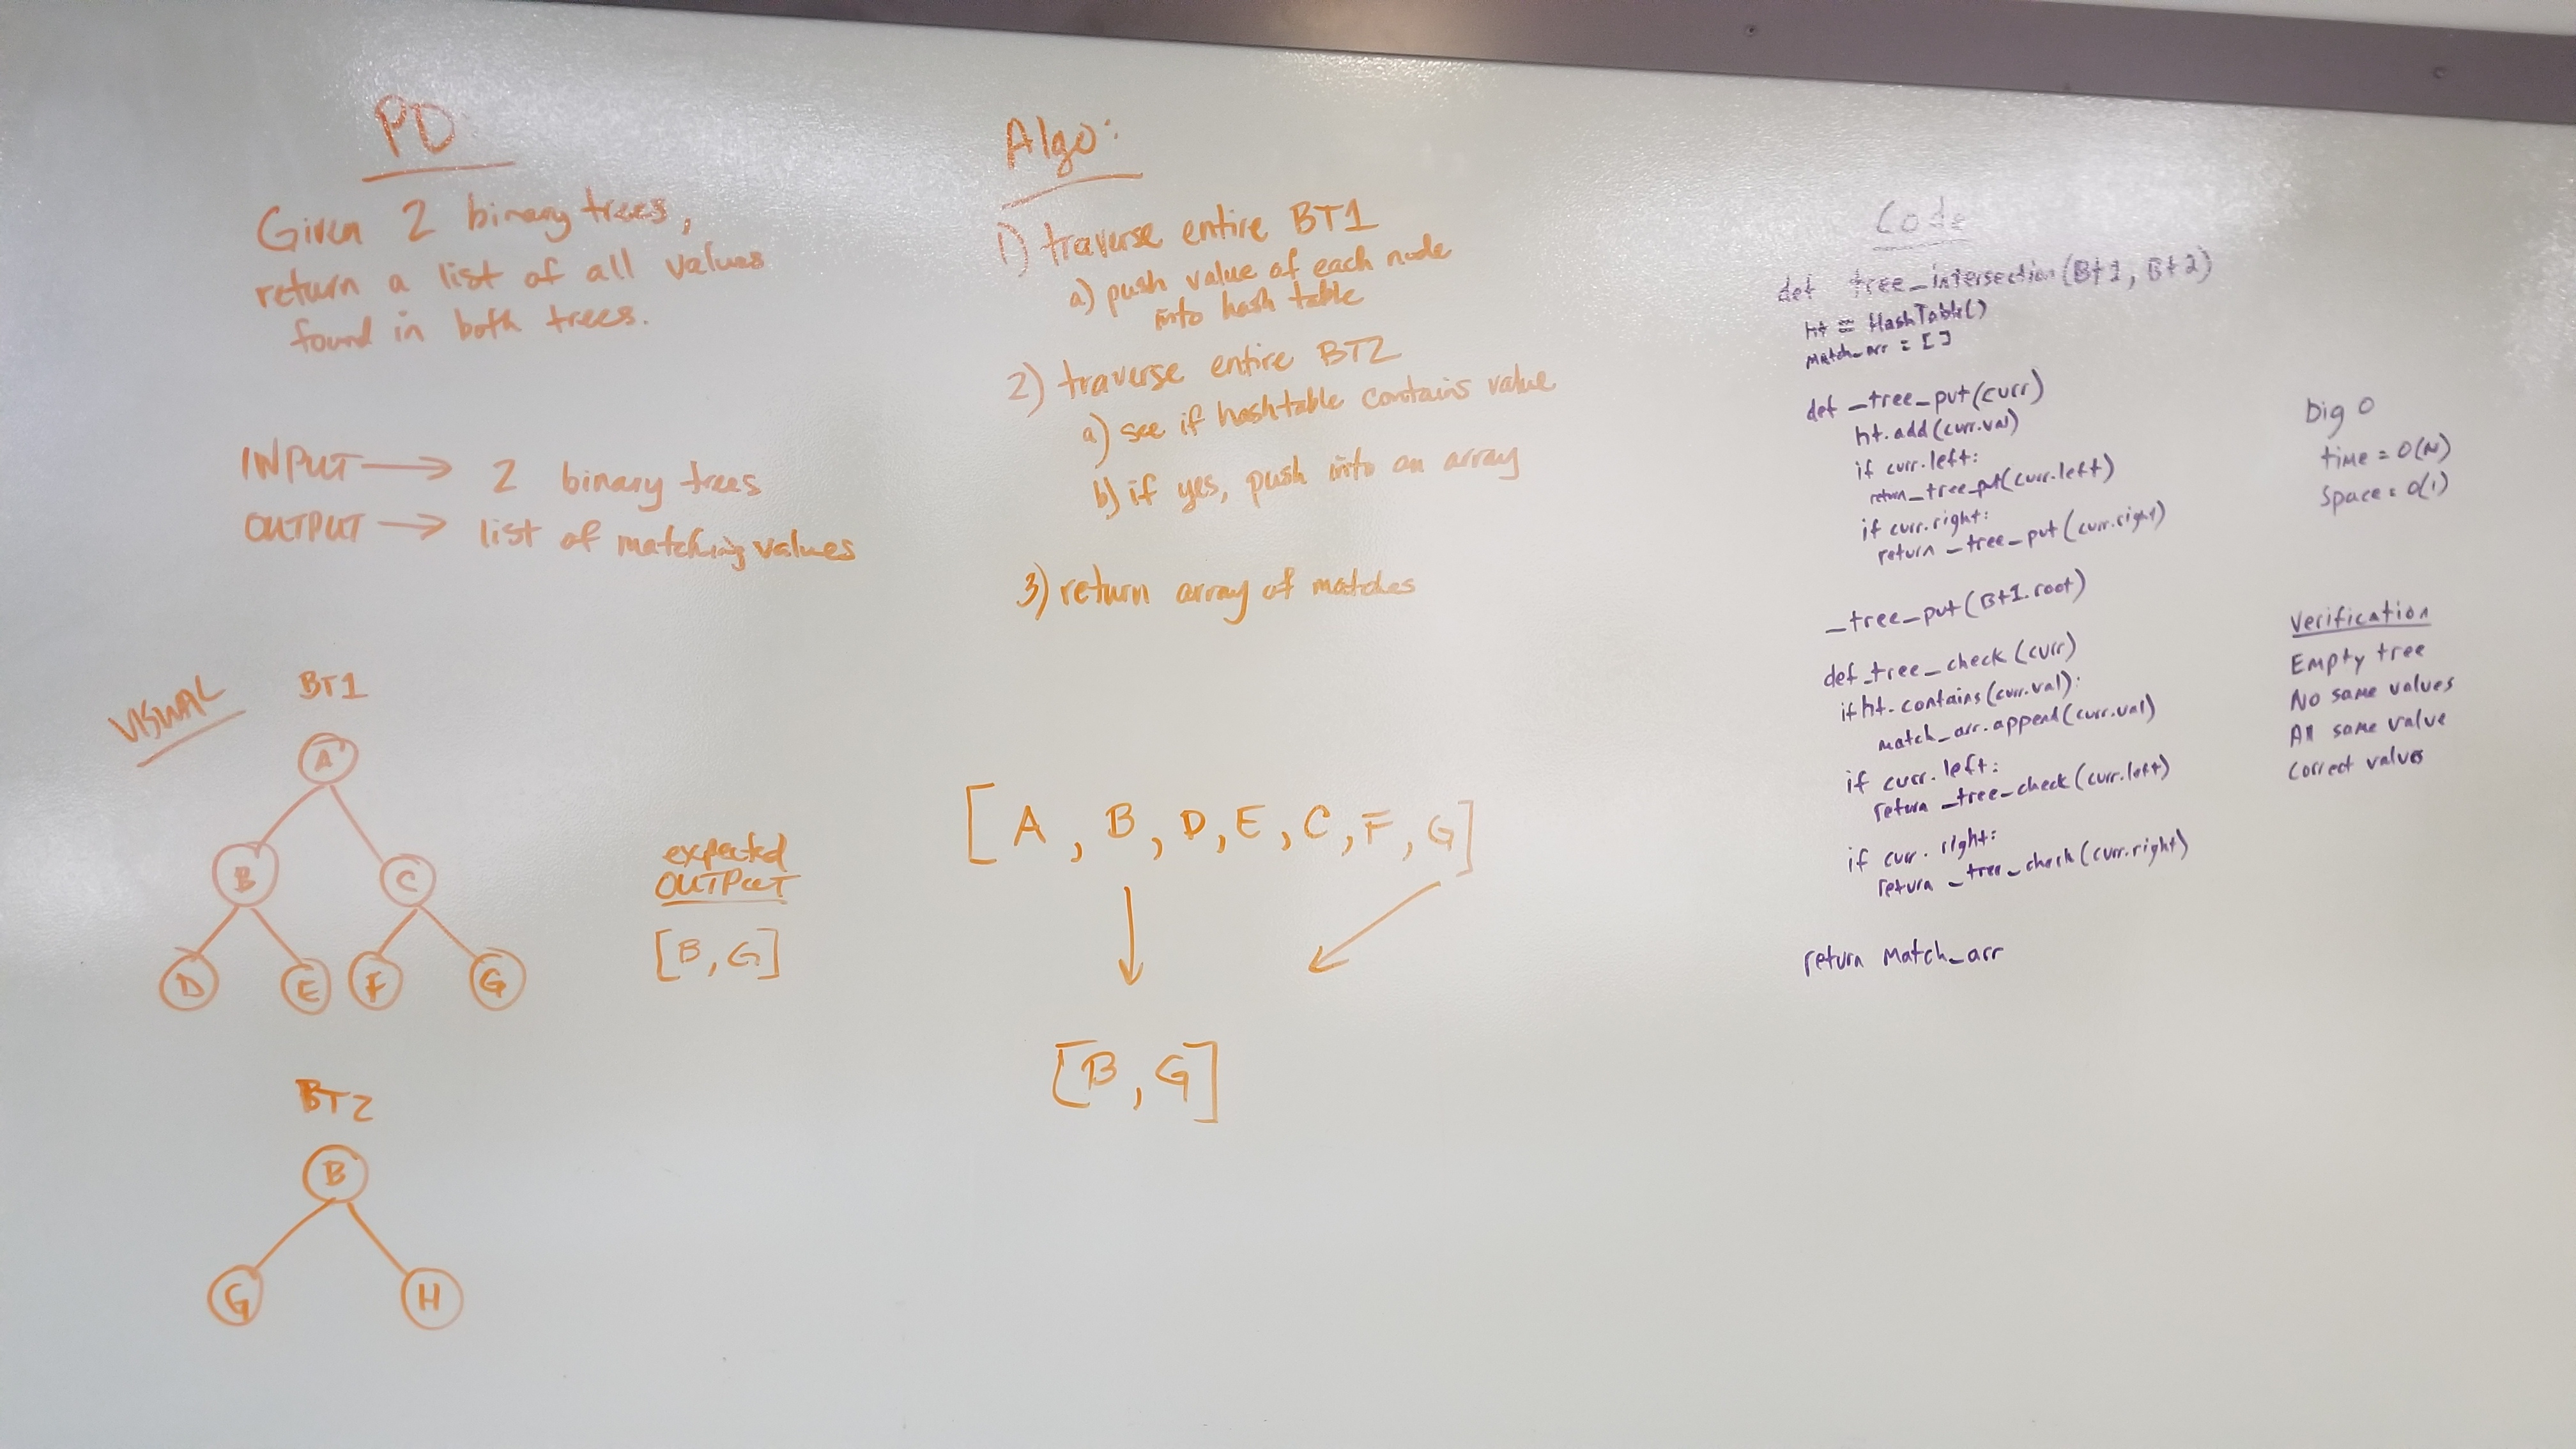 PD:
Given 2 binary trees,
return a list of all values
found in both trees.
INPUT → 2 binary trees
OUTPUT → list of matching values
VISUAL
BT1
A
B C
D E F G
expected
OUTPUT
[B, G]
BT2
B
G H
Algo:
1) traverse entire BT1
a) push value of each node
into hash table
2) traverse entire BT2
a) see if hashtable contains value
b) if yes, push into an array
3) return array of matches
[A, B, D, E, C, F, G]
[B, G]
Code
def tree_intersection(Bt1, Bt2)
ht = HashTable()
match_arr = []
def _tree_put(curr)
ht.add(curr.val)
if curr.left:
return _tree_put(curr.left)
if curr.right:
return _tree_put(curr.right)
_tree_put(Bt1.root)
def _tree_check(curr)
if ht.contains(curr.val):
match_arr.append(curr.val)
if curr.left:
return _tree_check(curr.left)
if curr.right:
return _tree_check(curr.right)
return match_arr
big O
time = O(N)
space = O(1)
Verification
Empty tree
No same values
All same value
Correct values